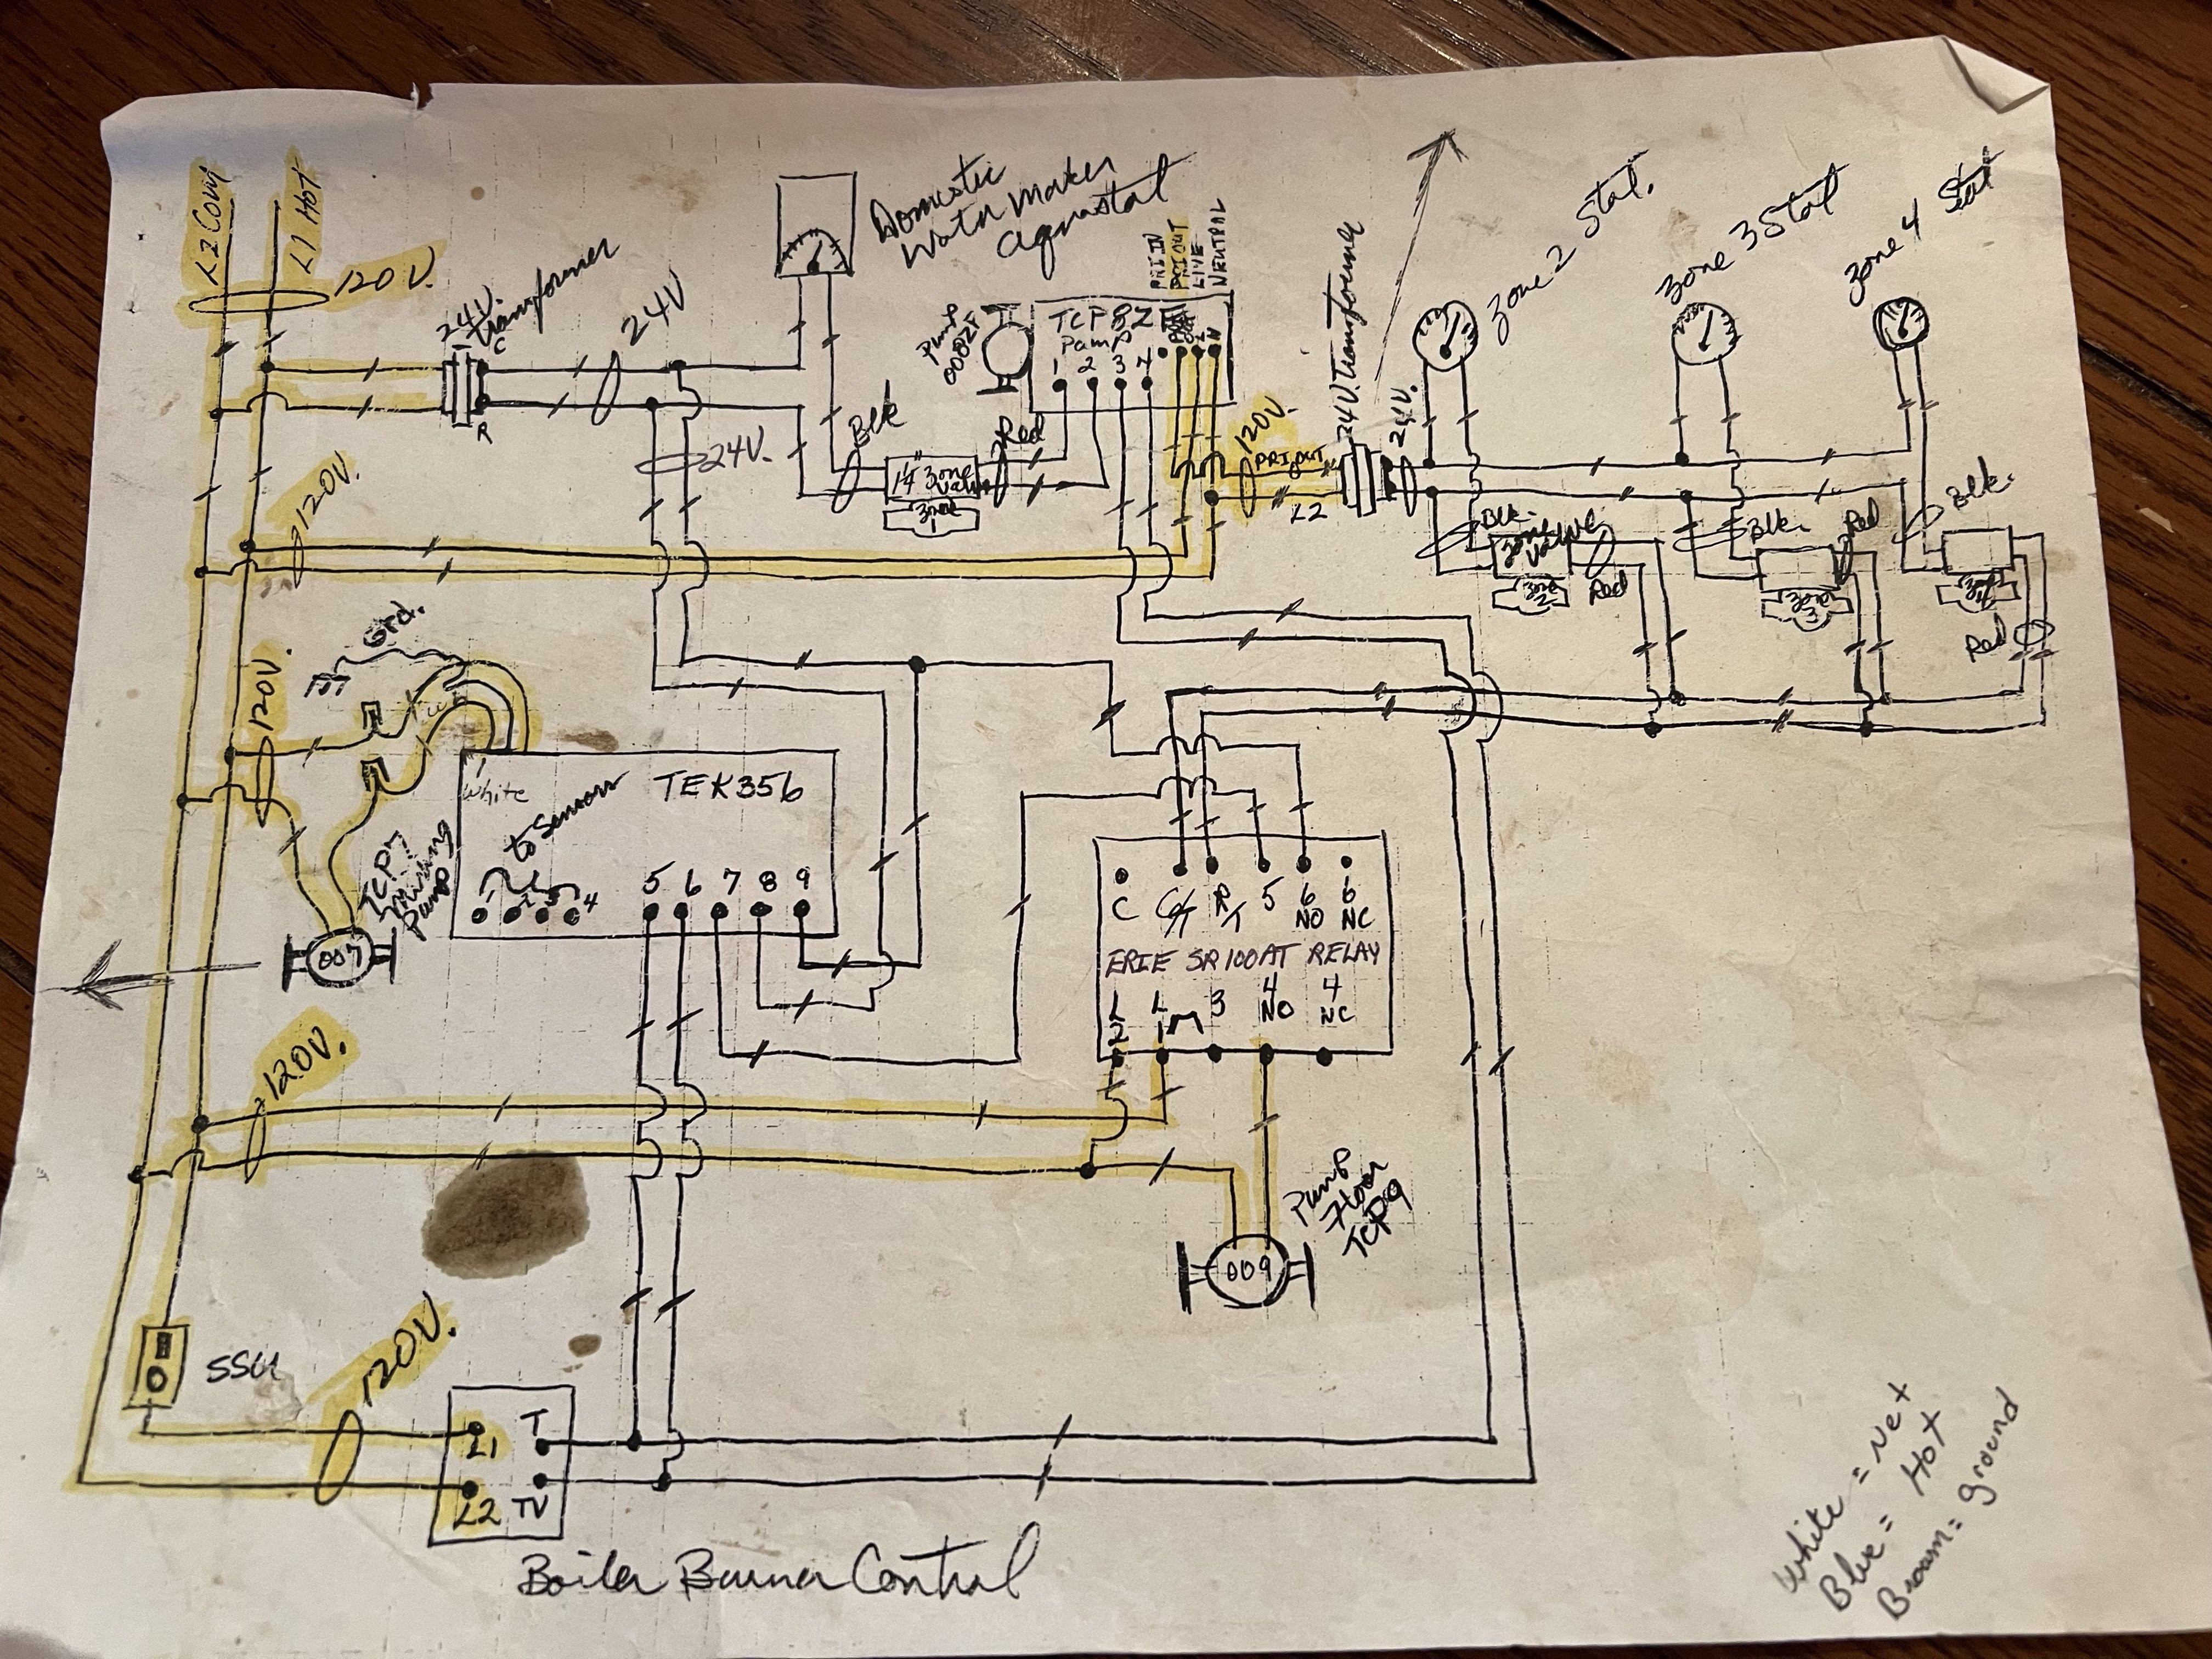 L2 Com
L1 Hot
120V.
24V.
Transformer
C
R
24V
24V.
Domestic
Water Maker
Aquastat
PRI IN
PRI OUT
LIVE
NEUTRAL
Pump
0082F
TCP82F
Pump
1 2 3 4
N
Blk
Red
1¼" Zone
Valve
Zone
1
120V.
PRI OUT
L2
24V. Transformer
24V.
Zone 2 Stat.
Zone 3 Stat
Zone 4 Stat
Blk.
Zone
Valve
Zone
2
Red
Blk.
Red
Zone
3
Blk.
Zone
4
Red
120V.
Grd.
120V.
White
to Sensors
TEK356
4
5 6 7 8 9
TCP7
Mixing
Pump
007
C C/T R/T 5 6 6
NO NC
ERIE SR100AT RELAY
L L 3 4 4
2 1 NO NC
120V.
Pump
Floor
TCP9
009
SSU
120V.
L1 T
L2 TV
Boiler Burner Control
White = Net
Blue = Hot
Brown = ground